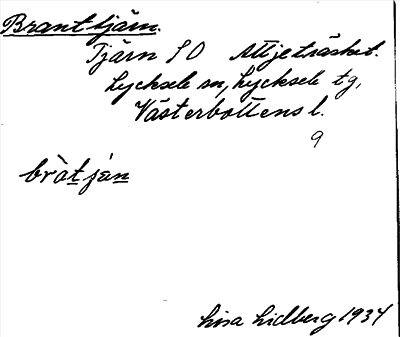 Branttjärn.
Tjärn S O Attjeträsket.
Lycksele sn, Lycksele tg,
Västerbottens l.
9
bràt ján
Lisa Lidberg 1934